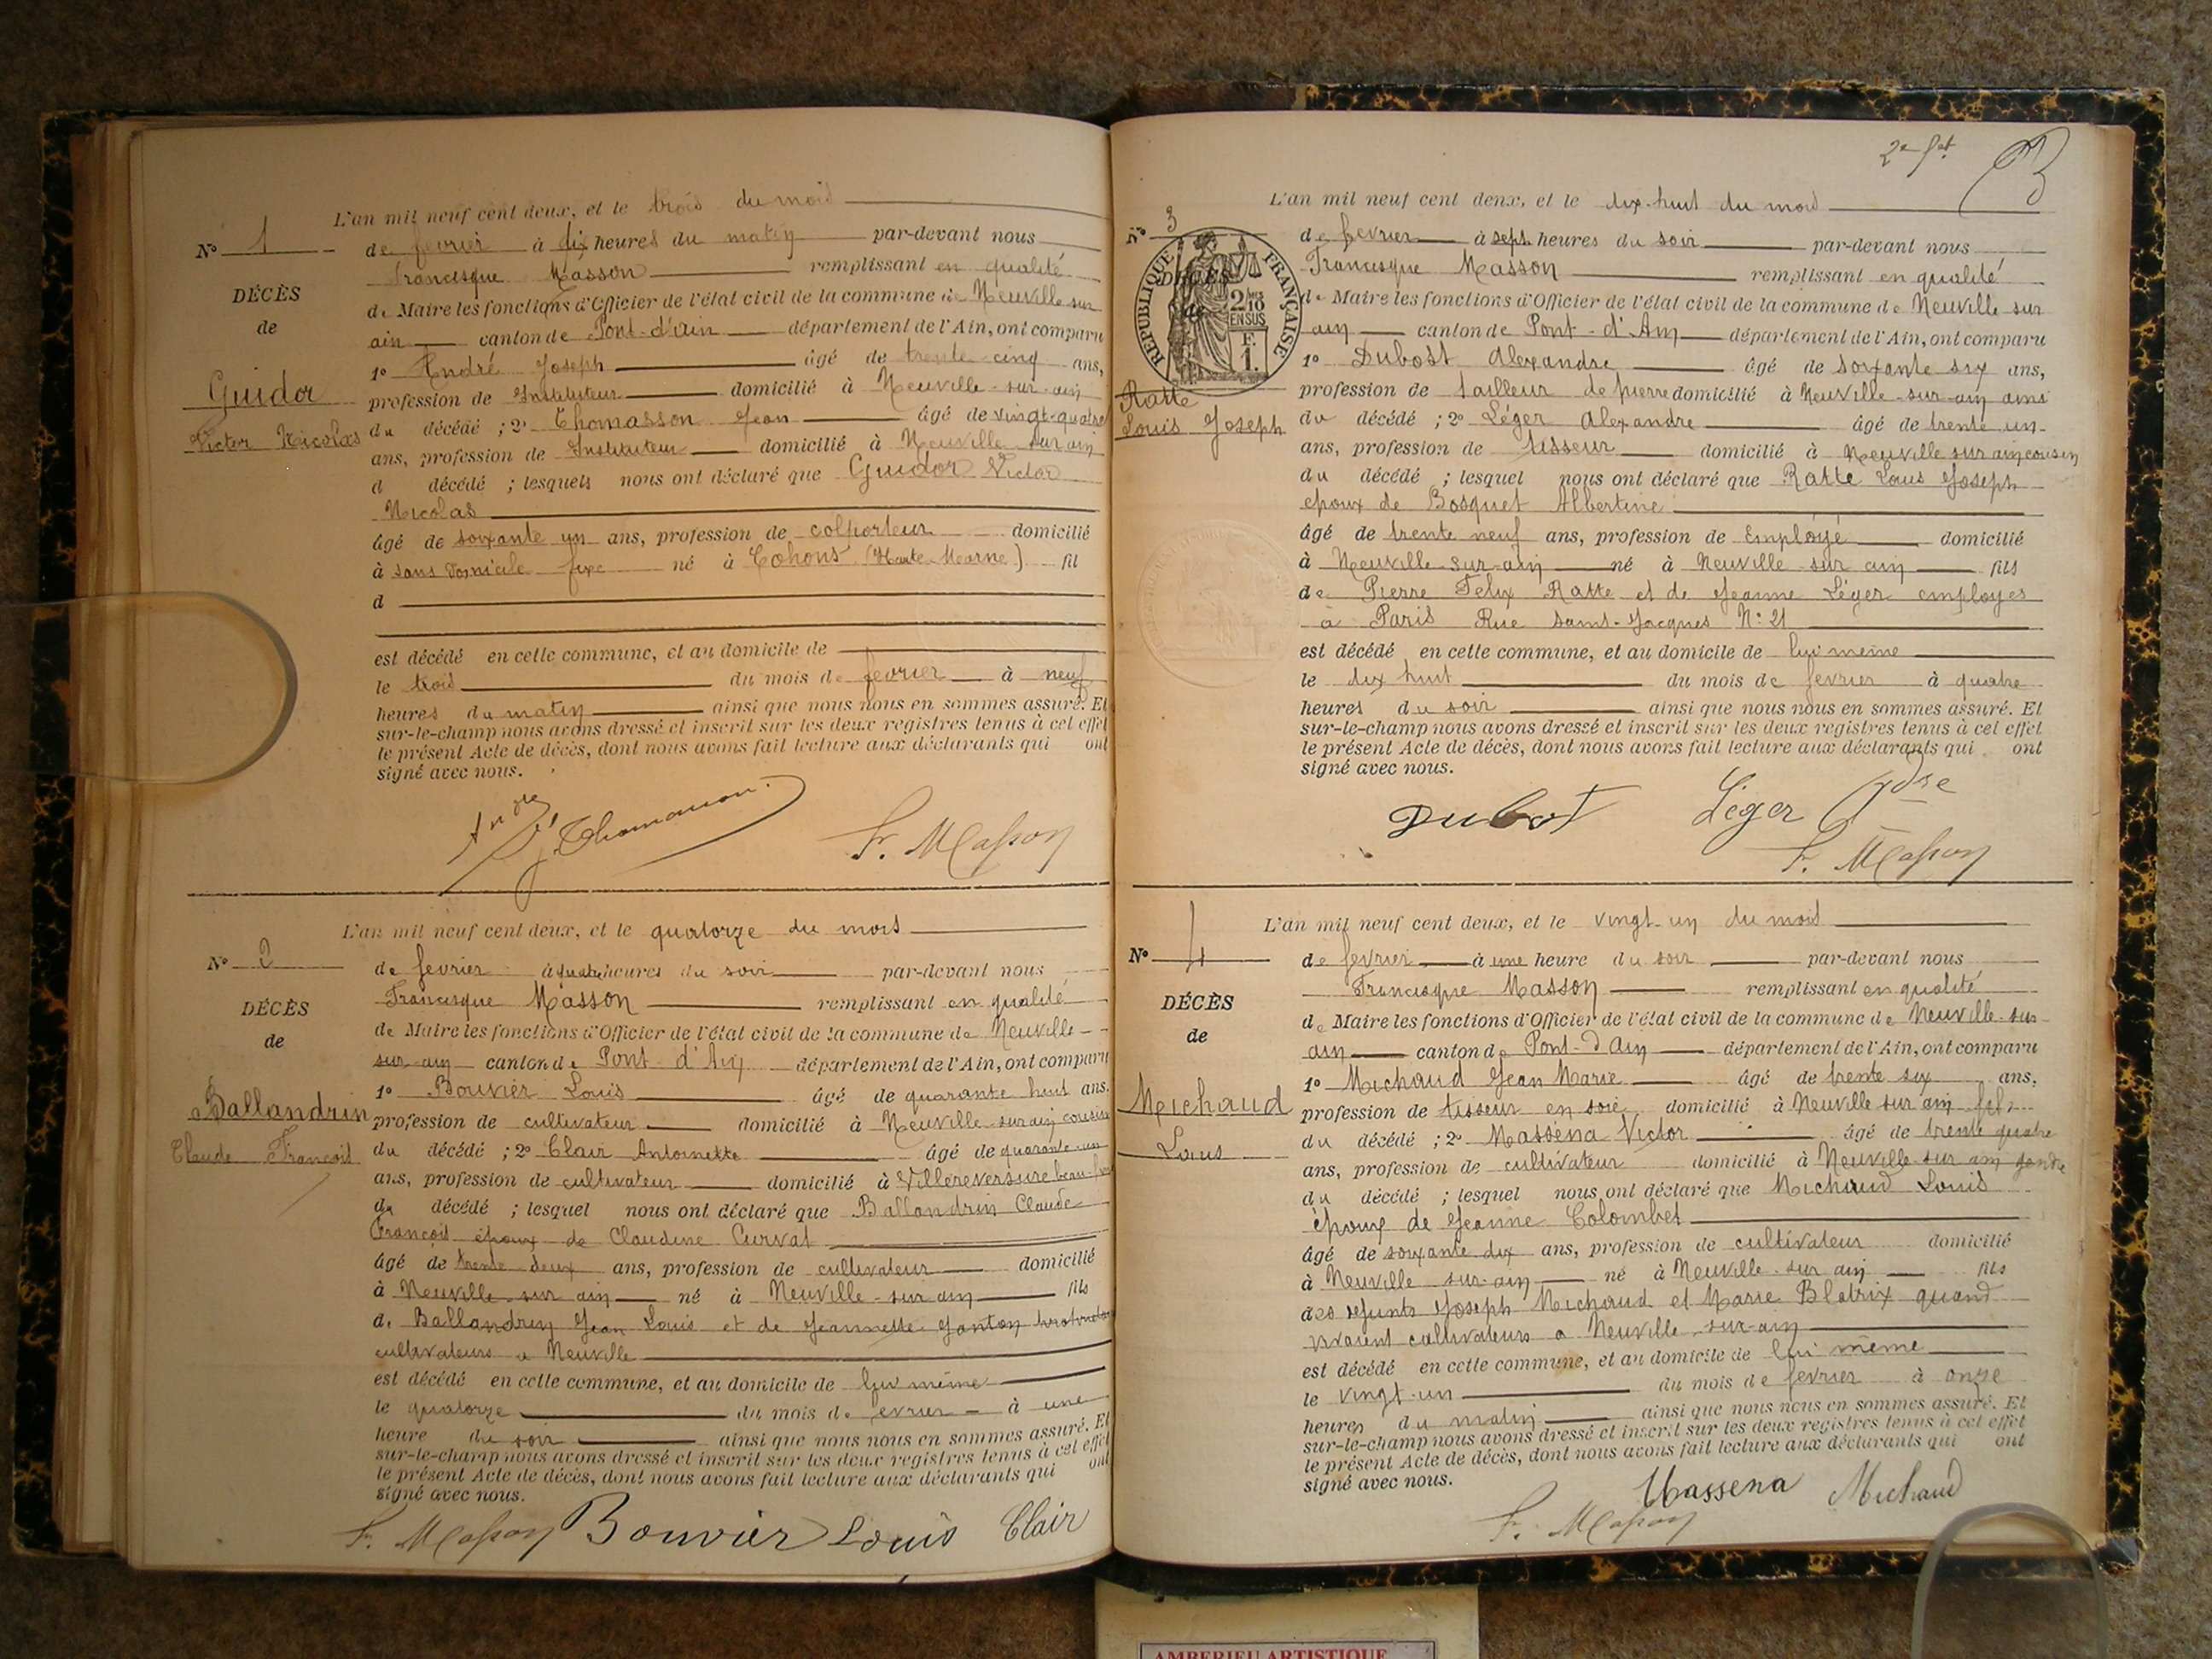 L'an mil neuf cent deux, et le trois du mois
N° 1
de fevrier à dix heures du matin par-devant nous
Francisque Masson remplissant en qualité
DÉCÈS
de Maire les fonctions d'Officier de l'état civil de la commune de Neuville sur
de
ain canton de Pont-d'ain département de l'Ain, ont comparu
1° André Joseph âgé de trente cinq ans,
Guidor
profession de Instituteur domicilié à Neuville-sur-ain
Victor Nicolas
du décédé ; 2° Thomasson Jean âgé de vingt-quatre
ans, profession de Instituteur domicilié à Neuville sur ain
d décédé ; lesquels nous ont déclaré que Guidor Victor
Nicolas
âgé de soixante un ans, profession de colporteur domicilié
à sans domicile fixe né à Cohons (Haute-Marne) fil
d
est décédé en cette commune, et au domicile de
le trois du mois de fevrier à neuf
heures du matin ainsi que nous nous en sommes assuré. Et
sur-le-champ nous avons dressé et inscrit sur les deux registres tenus à cet effet
le présent Acte de décès, dont nous avons fait lecture aux déclarants qui ont
signé avec nous.
André J. Thomasson F. Masson
L'an mil neuf cent deux, et le quatorze du mois
N° 2
de fevrier à quatre heures du soir par-devant nous
Francisque Masson remplissant en qualité
DÉCÈS
de Maire les fonctions d'Officier de l'état civil de la commune de Neuville-
de
sur-ain canton de Pont-d'Ain département de l'Ain, ont comparu
1° Bouvier Louis âgé de quarante huit ans.
Ballandrin
profession de cultivateur domicilié à Neuville-sur ain cousin
Claude François
du décédé ; 2° Clair Antoinette âgé de quarante-un
ans, profession de cultivateur domicilié à Villereversure
du décédé ; lesquel nous ont déclaré que Ballandrin Claude
François époux de Claudine Curvat
âgé de trente deux ans, profession de cultivateur domicilié
à Neuville sur ain né à Neuville-sur ain fils
de Ballandrin Jean Louis et de Jeannette
cultivateurs a Neuville
est décédé en cette commune, et au domicile de lui même
le quatorze du mois de fevrier à une
heure du soir ainsi que nous nous en sommes assuré. Et
sur-le-champ nous avons dressé et inscrit sur les deux registres tenus à cet effet
le présent Acte de décès, dont nous avons fait lecture aux déclarants qui ont
signé avec nous.
F. Masson Bouvier Louis Clair
L'an mil neuf cent deux, et le dix-huit du mois
N° 3
de fevrier à sept heures du soir par-devant nous
Francisque Masson remplissant en qualité
DÉCÈS
RÉPUBLIQUE FRANÇAISE
2/10 EN SUS
F. 1.
de Maire les fonctions d'Officier de l'état civil de la commune de Neuville sur
ain canton de Pont-d'Ain département de l'Ain, ont comparu
1° Dubost Alexandre âgé de soixante six ans,
Ratte
profession de tailleur de pierre domicilié à Neuville-sur-ain ami
Louis Joseph
du décédé ; 2° Léger Alexandre âgé de trente un
ans, profession de tisseur domicilié à Neuville sur ain cousin
du décédé ; lesquel nous ont déclaré que Ratte Louis Joseph
epoux de Bosquet Albertine
âgé de trente neuf ans, profession de Employé domicilié
à Neuville-sur-ain né à Neuville-sur ain fils
de Pierre Felix Ratte et de Jeanne Léger employes
à Paris Rue Saint-Jacques N° 21
est décédé en cette commune, et au domicile de lui même
le dix huit du mois de fevrier à quatre
heures du soir ainsi que nous nous en sommes assuré. Et
sur-le-champ nous avons dressé et inscrit sur les deux registres tenus à cet effet
le présent Acte de décès, dont nous avons fait lecture aux déclarants qui ont
signé avec nous.
Dubost Léger Adre
F. Masson
L'an mil neuf cent deux, et le vingt-un du mois
N° 4
de fevrier à une heure du soir par-devant nous
Francisque Masson remplissant en qualité
DÉCÈS
de Maire les fonctions d'Officier de l'état civil de la commune de Neuville-sur
de
ain canton de Pont-d'Ain département de l'Ain, ont comparu
1° Michaud Jean Marie âgé de trente six ans.
Michaud
profession de tisseur en soie domicilié à Neuville sur ain fils
Louis
du décédé ; 2° Massena Victor âgé de trente quatre
ans, profession de cultivateur domicilié à Neuville sur ain gendre
du décédé ; lesquel nous ont déclaré que Michaud Louis
époux de Jeanne Colombet
âgé de soixante dix ans, profession de cultivateur domicilié
à Neuville sur-ain né à Neuville-sur ain fils
des defunts Joseph Michaud et Marie Blatrix quand
vivaient cultivateurs a Neuville-sur-ain
est décédé en cette commune, et au domicile de lui même
le vingt-un du mois de fevrier à onze
heures du matin ainsi que nous nous en sommes assuré. Et
sur-le-champ nous avons dressé et inscrit sur les deux registres tenus à cet effet
le présent Acte de décès, dont nous avons fait lecture aux déclarants qui ont
signé avec nous.
Massena Michaud
F. Masson
AMBERIEU ARTISTIQUE